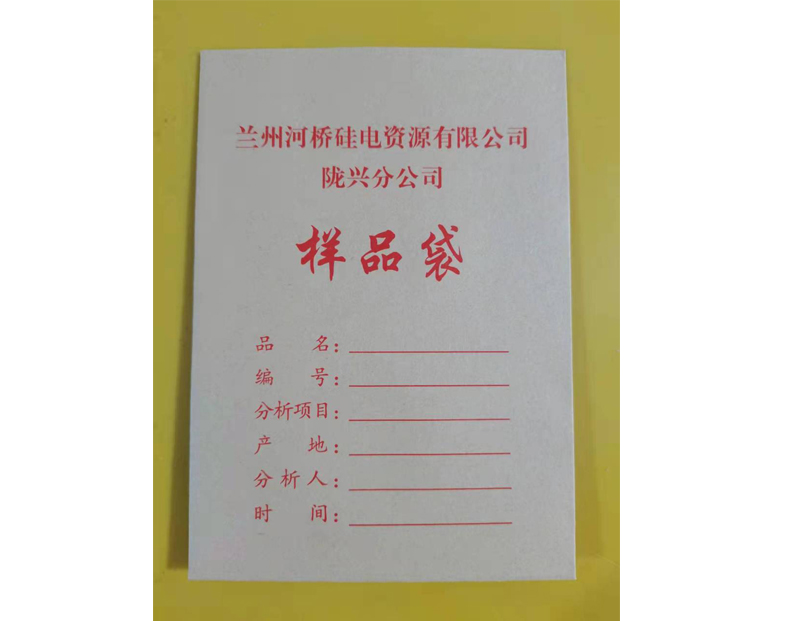 兰州河桥硅电资源有限公司
陇兴分公司
样品袋
品 名：
编 号：
分析项目：
产 地：
分 析 人：
时 间：